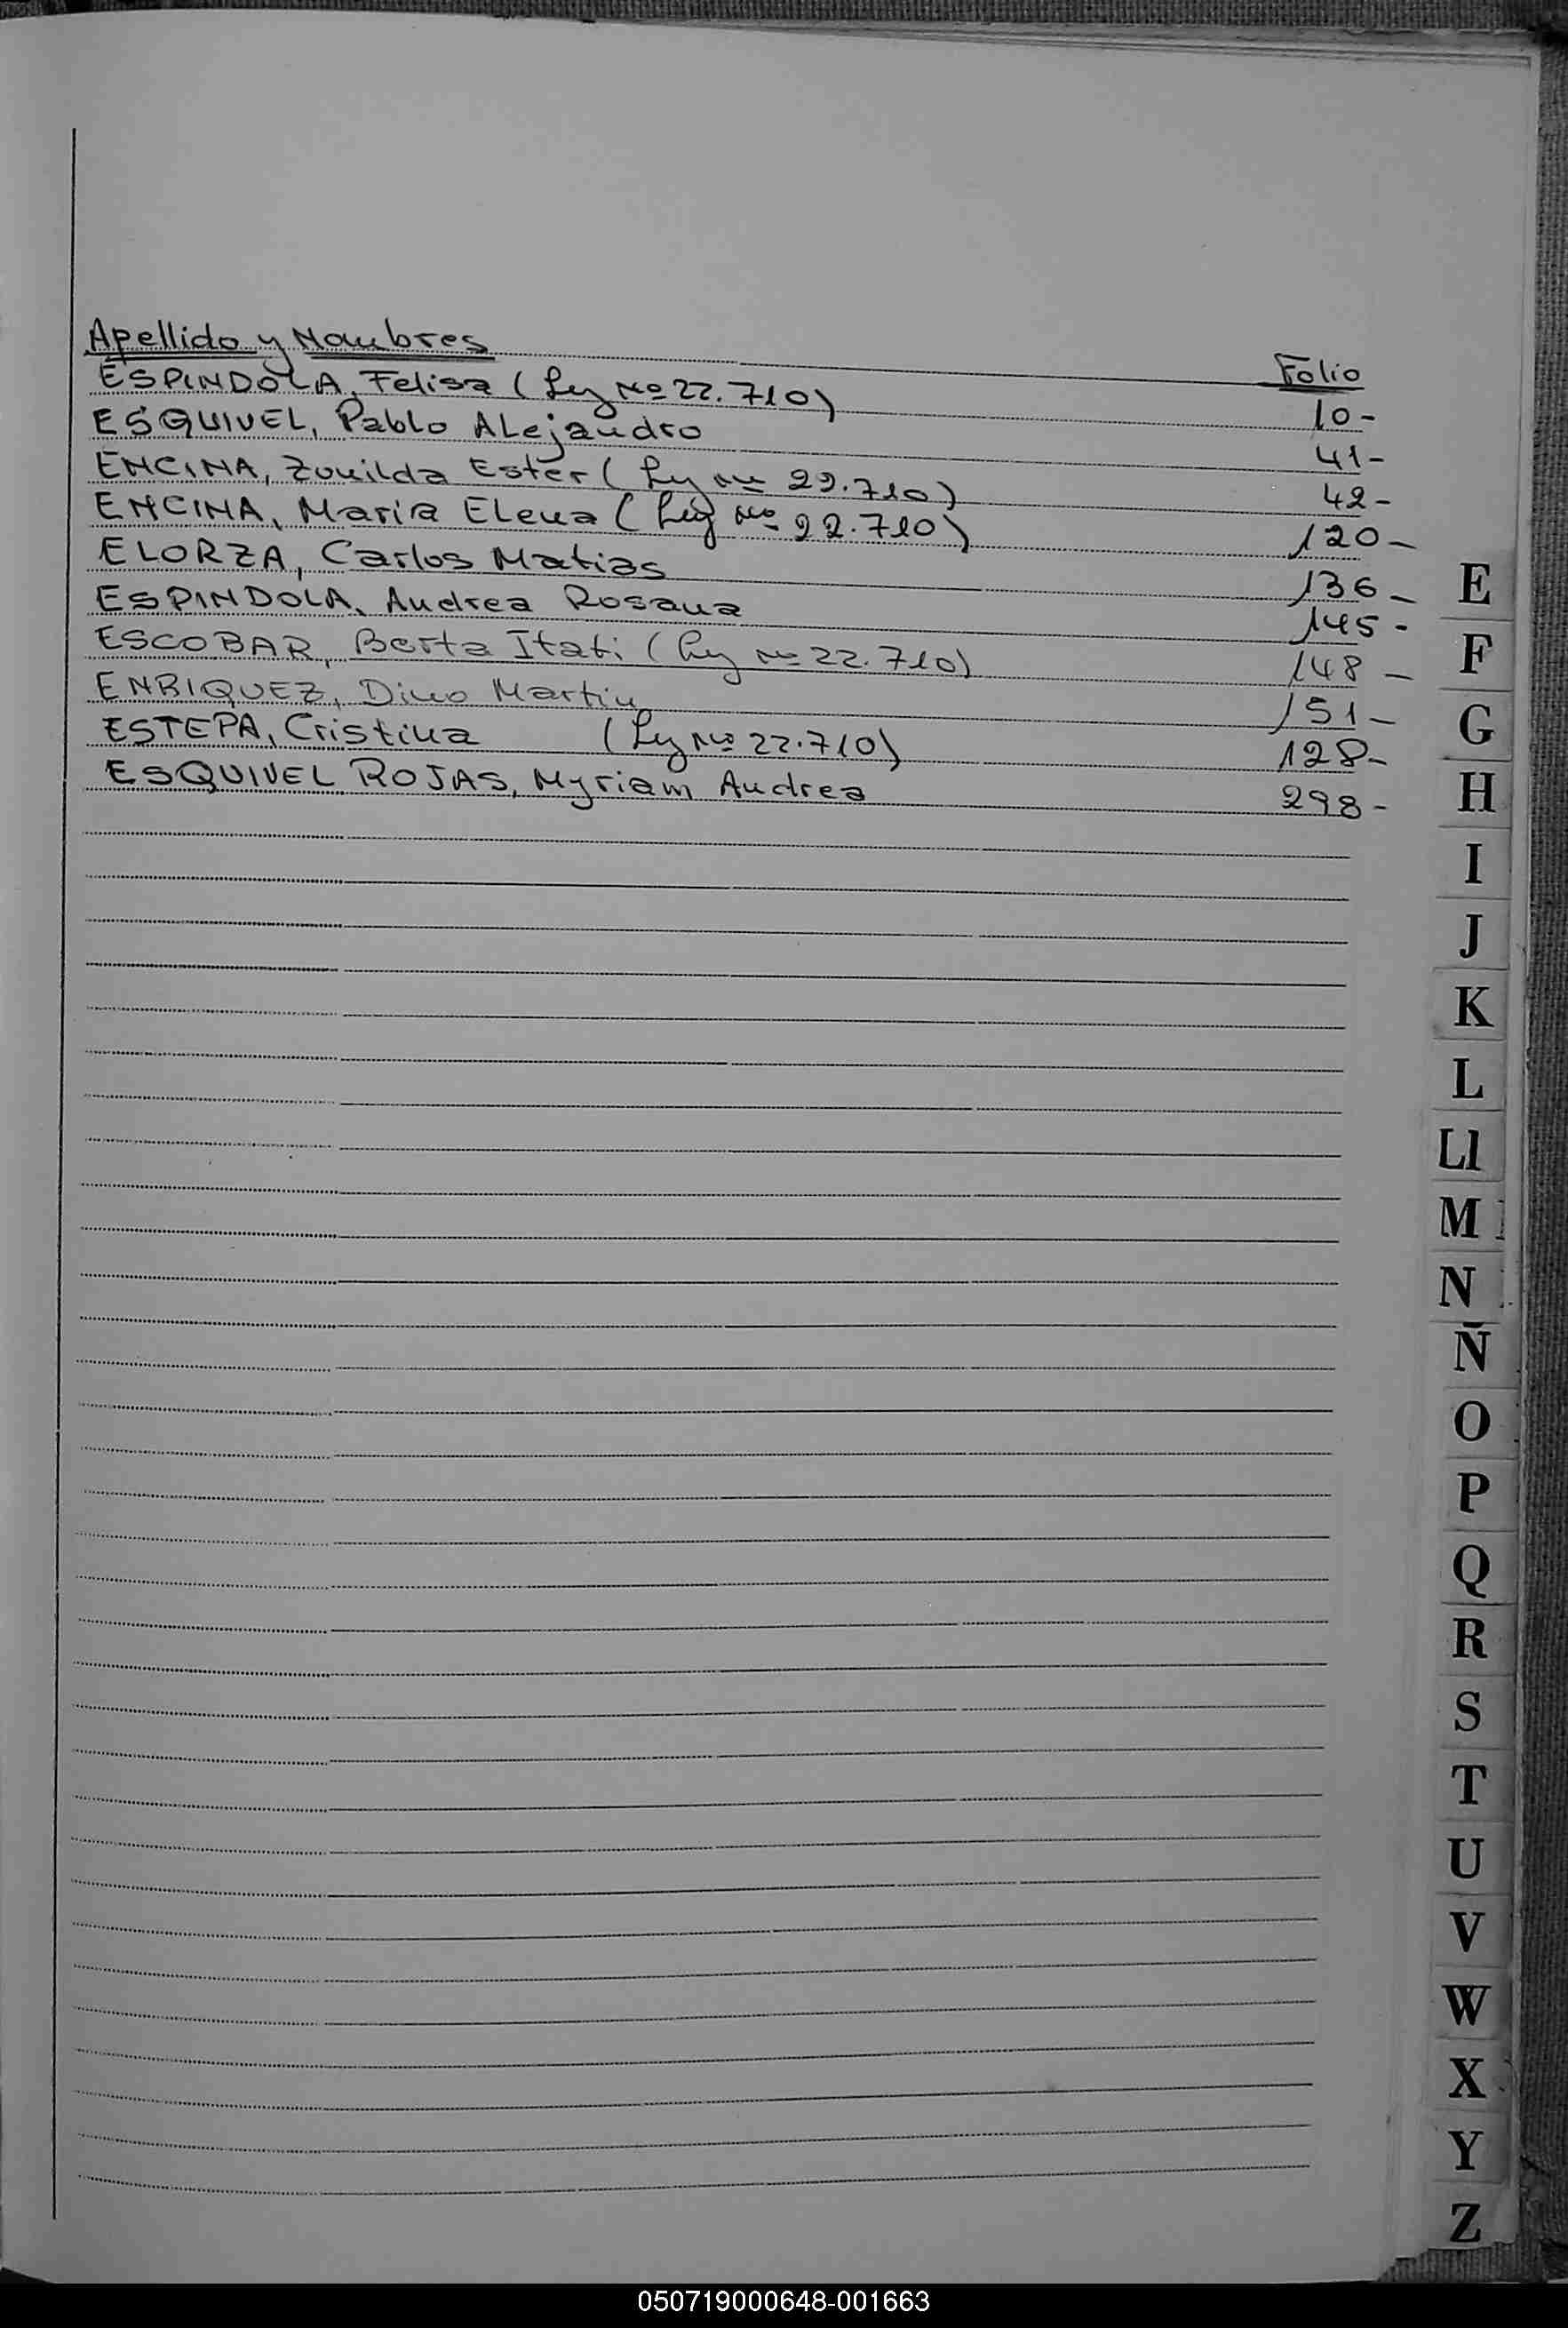 Apellido y Nombres Folio
ESPINDOLA, Felisa (Ley Nº 22.710) 10-
ESQUIVEL, Pablo ALejandro 41-
ENCINA, Zunilda Ester (Ley Nº 22.710) 42-
ENCINA, Maria Elena (Ley Nº 22.710) 120-
ELORZA, Carlos Matias 136-
ESPINDOLA, Andrea Rosana 145-
ESCOBAR, Berta Itati (Ley Nº 22.710) 148-
ENRIQUEZ, Dino Martin 151-
ESTEPA, Cristina (Ley Nº 22.710) 128-
ESQUIVEL ROJAS, Myriam Andrea 298-
E
F
G
H
I
J
K
L
Ll
M
N
Ñ
O
P
Q
R
S
T
U
V
W
X
Y
Z
050719000648-001663